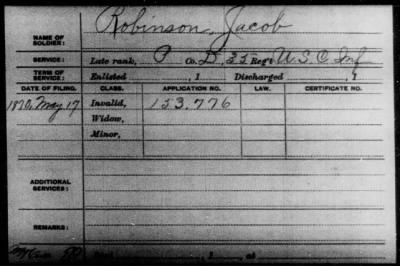 Robinson, Jacob
NAME OF SOLDIER:
SERVICE: Late rank, P Co. D, 35 Reg't U.S.C. Inf
TERM OF SERVICE: Enlisted , 1 Discharged , 1
DATE OF FILING. CLASS. APPLICATION NO. LAW. CERTIFICATE NO.
1870, May 17 Invalid, 153,776
Widow,
Minor,
ADDITIONAL SERVICES:
REMARKS:
, 1 , at